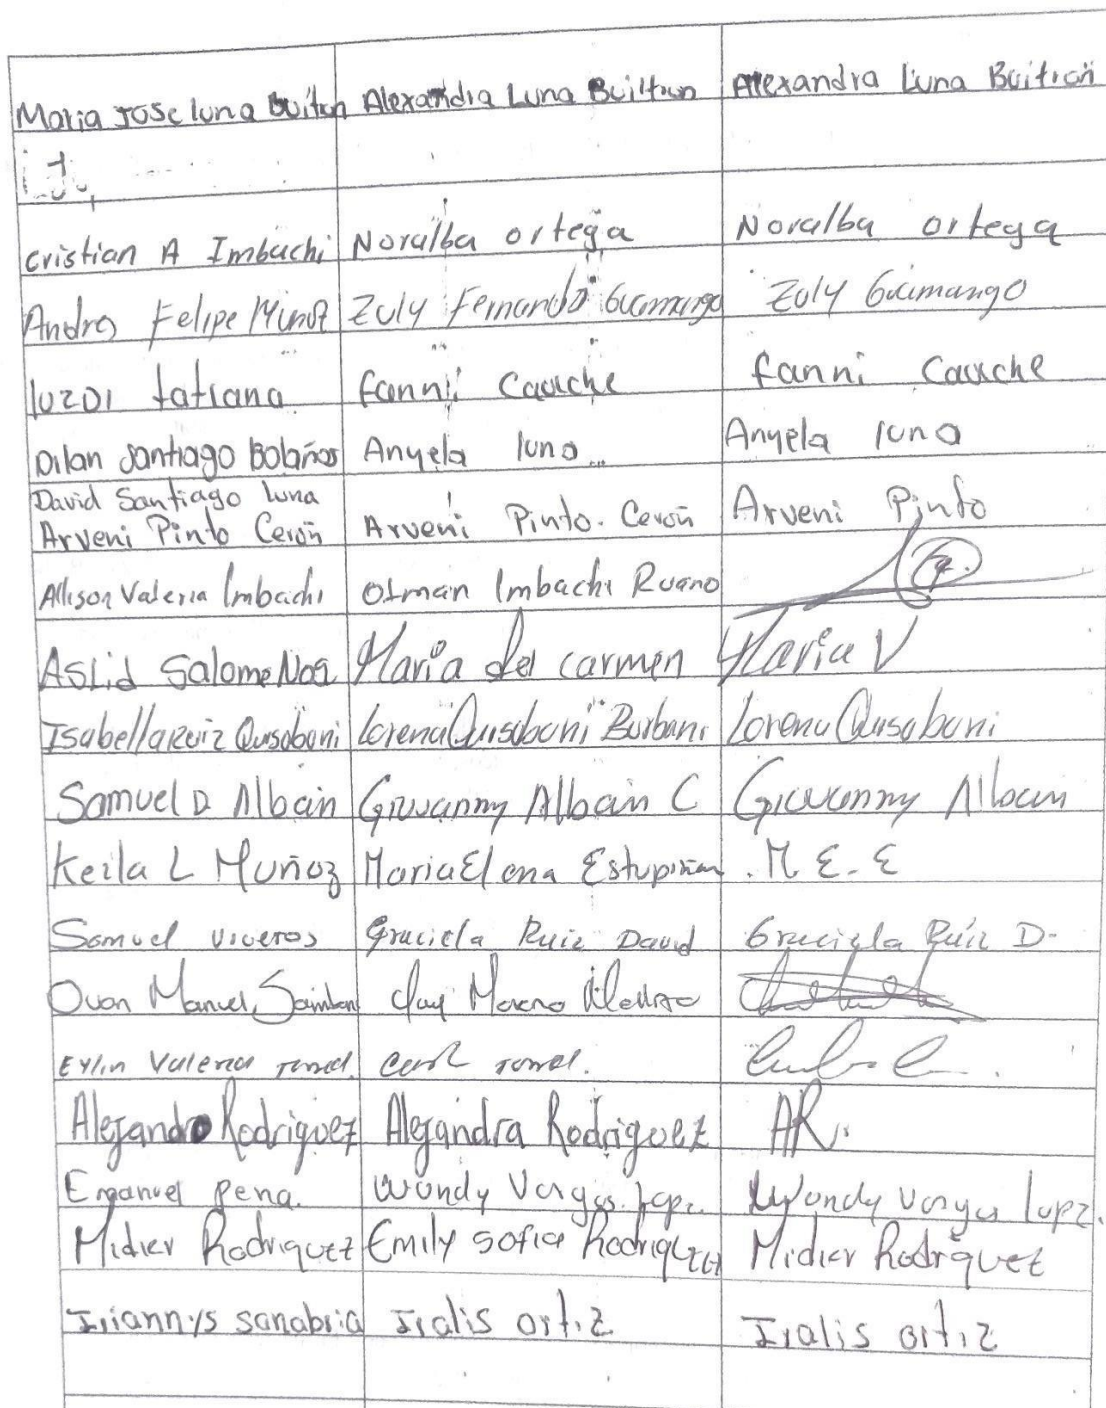 Maria Jose luna Buitrn Alexandra Luna Builtron Alexandra Luna Buitron
cristian A Imbachi Noralba ortega Noralba ortega
Andres Felipe Muñoz Zuly Fernanda Guamanga Zuly Guamanga
luzDi tatiana fanni Cauche fanni Cauche
Dilan Santiago Bolaños Anyela luna Anyela luna
David Santiago luna
Arveni Pinto Cerón Arveni Pinto. Cerón Arveni Pinto
Allison Valeria Imbachi Otman Imbachi Ruano
Aslid Salome Noa Maria del carmen Maria V
Isabella Ruiz Qusoboni Lorena Quisoboni Burbano Lorena Qusoboni
Samuel D Alban Giovanny Alban C Giovanny Alban
Keila L Muñoz Maria Elena Estupiñan M E. E
Samuel viveros Graciela Ruiz David Graciela Ruiz D-
Manuel Moreno
Eylin Valeria
Alejandro Rodriguez Alejandra Rodriguez AR.
Emanuel Pena. Wendy Vargas Wendy Vargas
Midier Rodriguez Emily sofia Rodriguez Midier Rodriguez
Iriannys sanabria Iralis ortiz Iralis ortiz